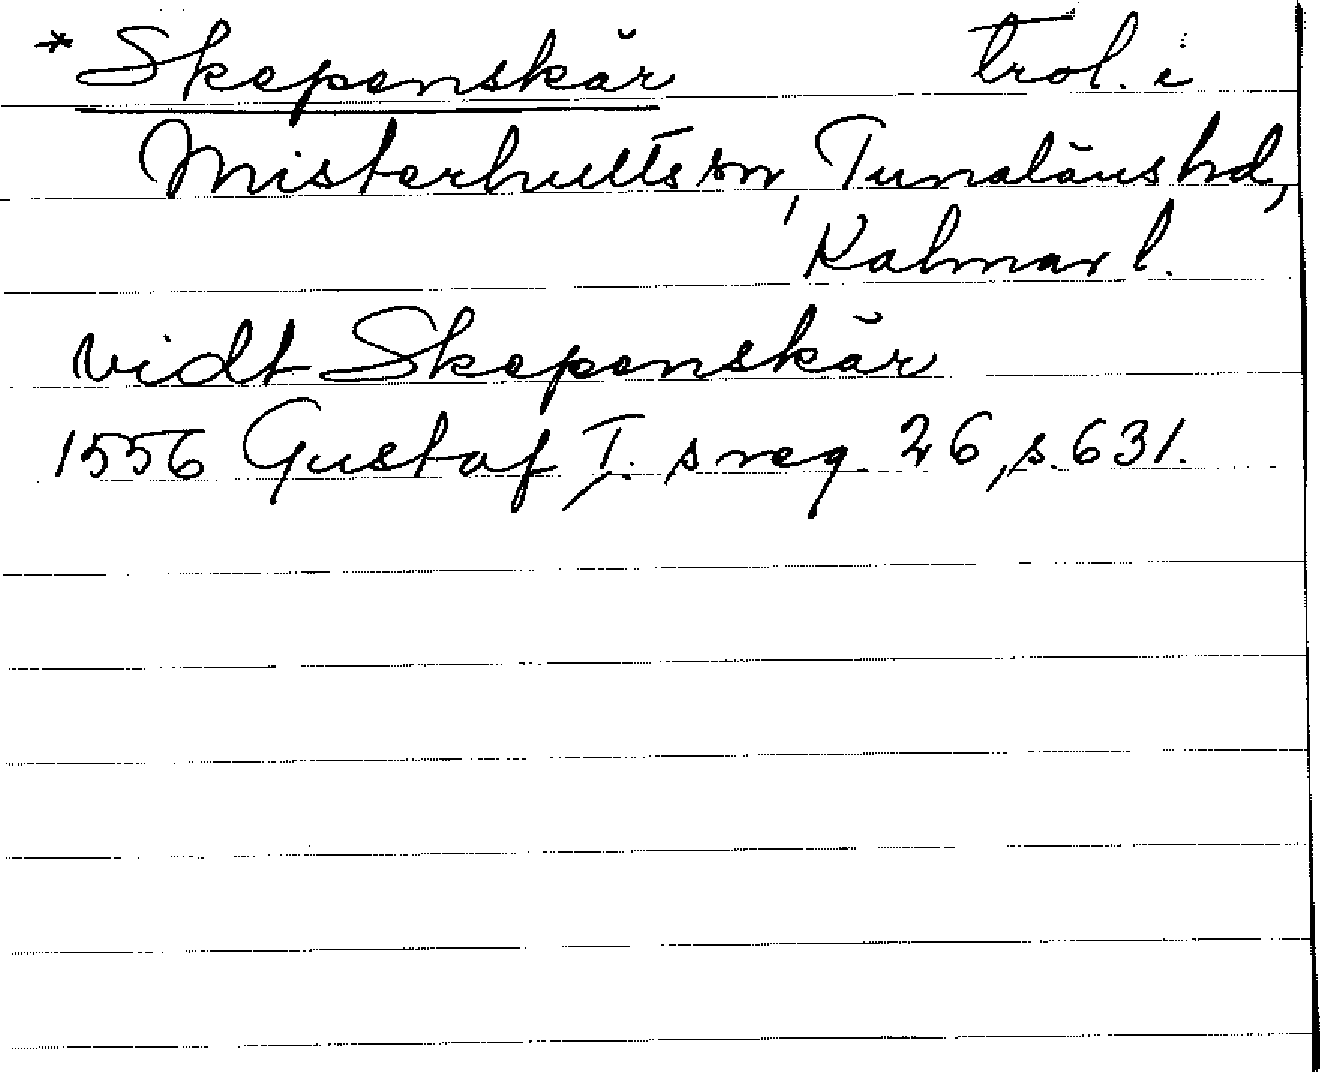 *Skepenskär trol. i
Misterhults sn, Tunaläns hd,
Kalmar l.
vidt Skepenskär
1556 Gustaf I. s reg. 26, s. 631.